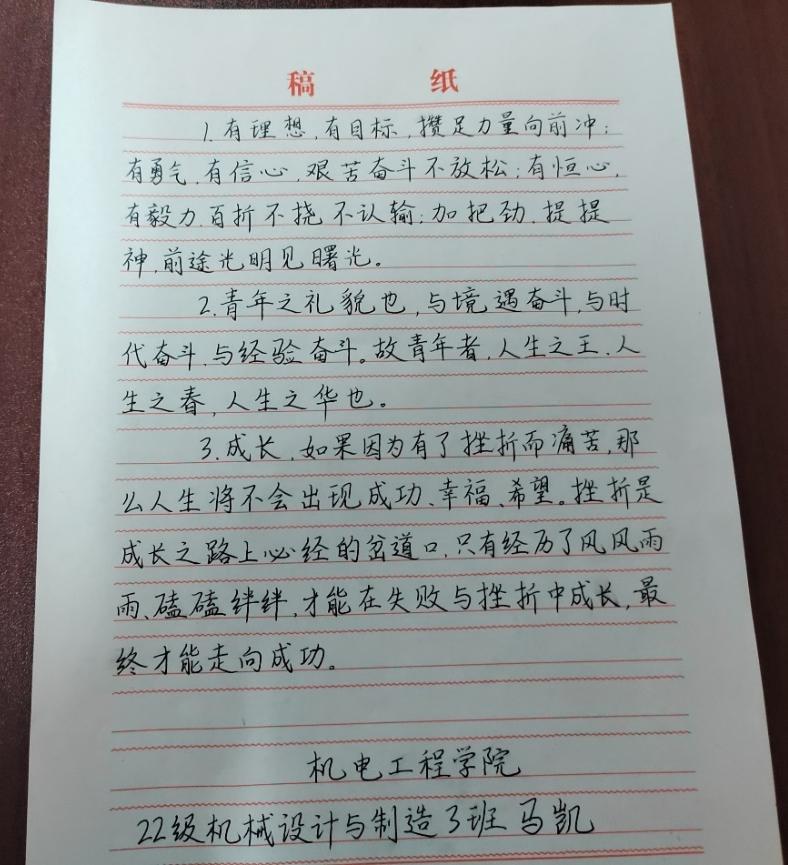 稿 纸
1.有理想,有目标,攒足力量向前冲;
有勇气,有信心,艰苦奋斗不放松;有恒心,
有毅力,百折不挠不认输;加把劲,提提
神,前途光明见曙光。
2.青年之礼貌也,与境遇奋斗,与时
代奋斗,与经验奋斗。故青年者,人生之王,人
生之春,人生之华也。
3.成长,如果因为有了挫折而痛苦,那
么人生将不会出现成功、幸福、希望。挫折是
成长之路上必经的岔道口,只有经历了风风雨
雨、磕磕绊绊,才能在失败与挫折中成长,最
终才能走向成功。
机电工程学院
22级机械设计与制造3班 马凯